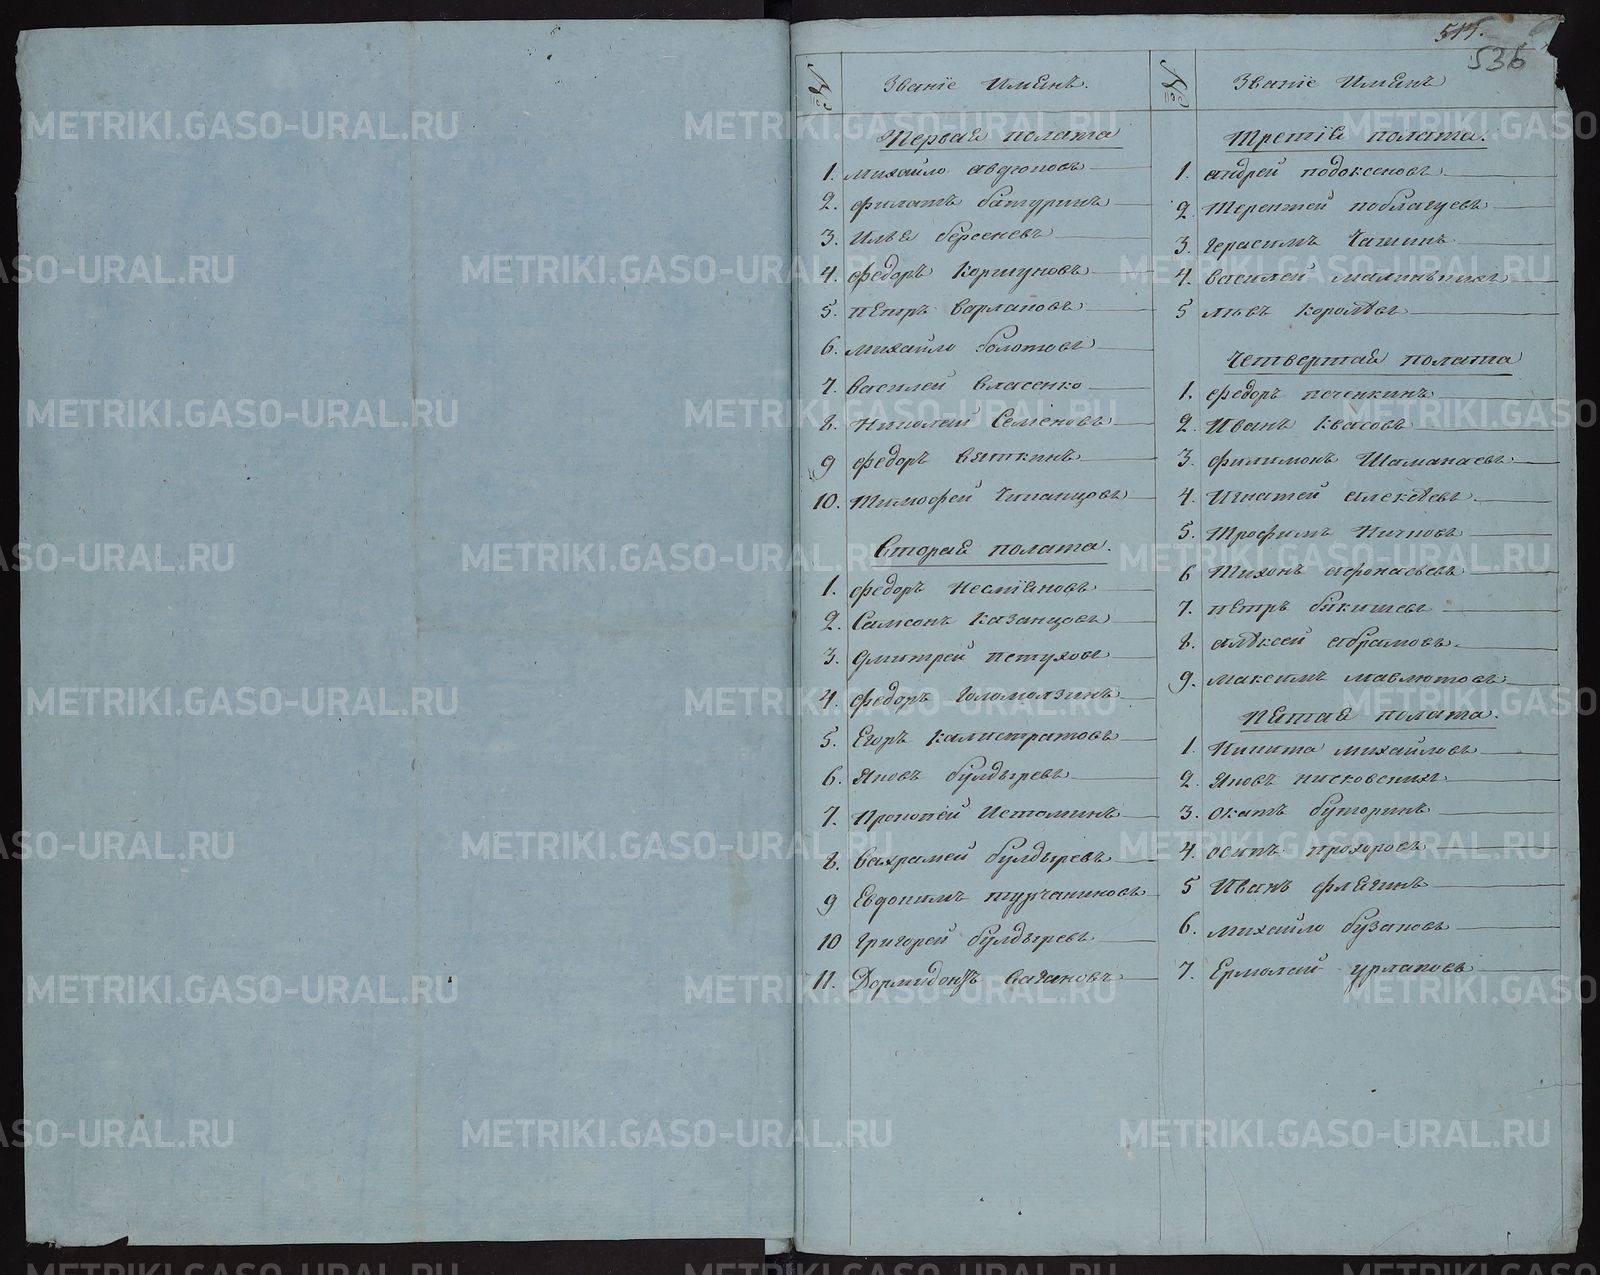 515.
536
№ Званіе Именъ.
Первая полата
1. михайло авдюповъ
2. филатъ батуринъ
3. Илья берсеневъ
4. федоръ Коршуновъ
5. петръ варлаповъ
6. михайло болотовъ
7. василей власенко
8. Николай Семеновъ
9 федоръ вяткинъ
10. Тимофей
Вторая полата.
1. федоръ несміяновъ
2. Самсонъ Казанцовъ
3. Дмитрей петуховъ
4. федоръ голомолзинъ
5. Егоръ Калистратовъ
6. Яковъ булдыревъ
7. Прокопей Истоминъ
8. вахрамей булдыревъ
9 Евдокимъ турчаниновъ
10 григорей булдыревъ
11. Дормидонтъ вагановъ
№ Званіе Именъ
Третія полата.
1. андрей подоксеновъ
2. Терентей поблагуевъ
3. герасимъ Чащинъ
4. василей малинькихъ
5 львъ королѣвъ
Четвертая полата
1. федоръ печенкинъ
2. Иванъ Квасовъ
3. филимонъ Шаманаевъ
4. Игнатей алекѣевъ
5. Трофимъ Ничковъ
6 Тихонъ афонасьевъ
7. петръ бикишевъ
8. алѣксей абрамовъ.
9. максимъ мавлютовъ
Пятая полата.
1. Никита михайловъ
2. Яковъ нисковскихъ
3. Окатъ буторинъ
4. осипъ прохоровъ
5 Иванъ флягинъ
6. михайло бузановъ
7. Ермолай урлаповъ
METRIKI.GASO-URAL.RU